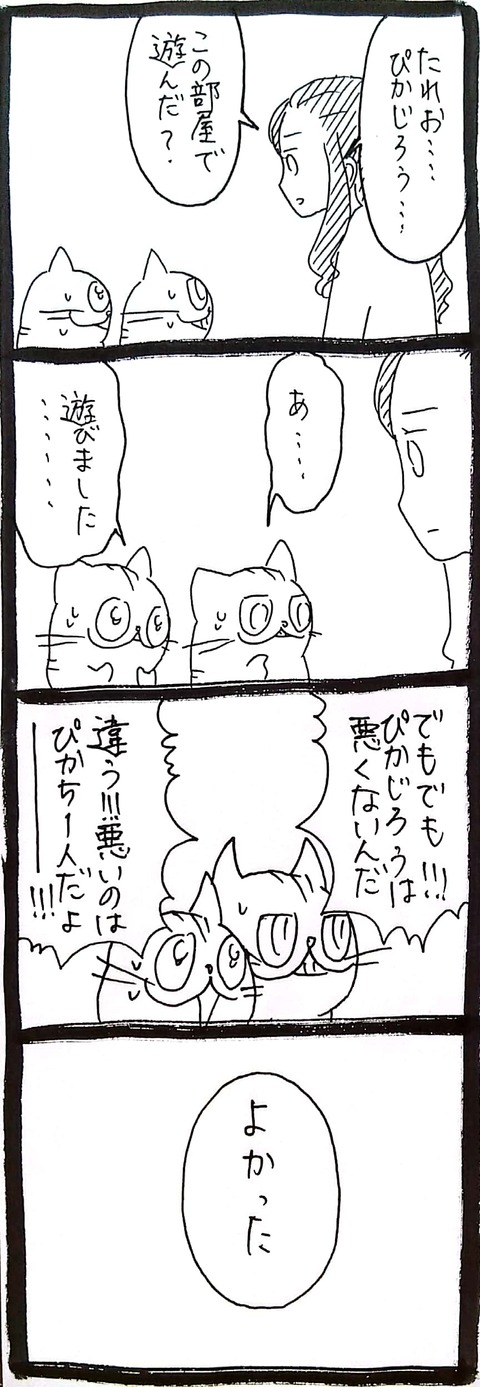 たれお‥‥
ぴかじろう‥‥
この部屋で
遊んだ?
あ‥‥
遊びました
‥‥‥
でもでも!!!
ぴかじろうは
悪くないんだ
違う!!!悪いのは
ぴかち1人だよ
――!!!
よかった